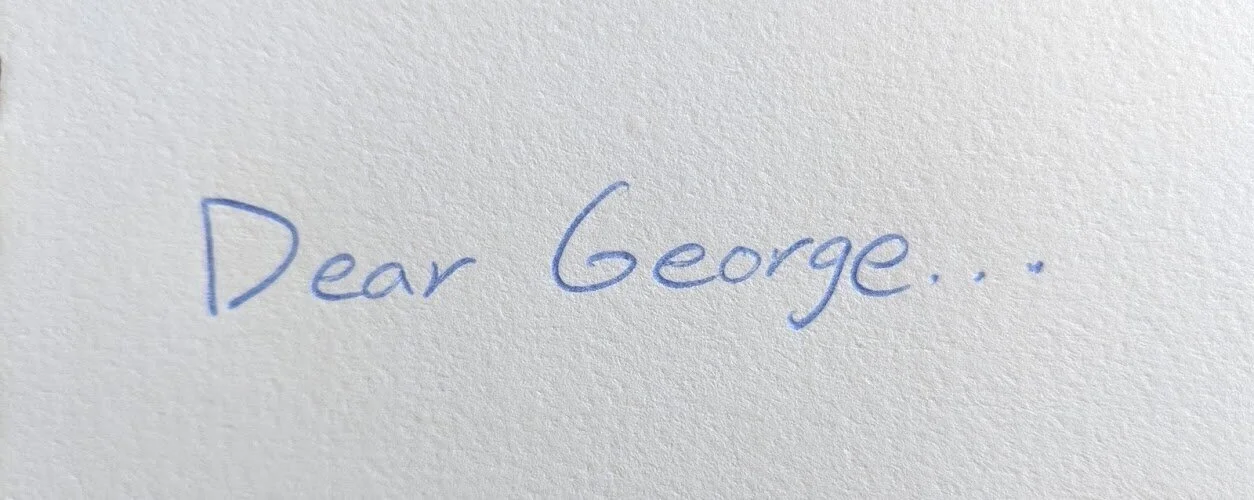 Dear George...